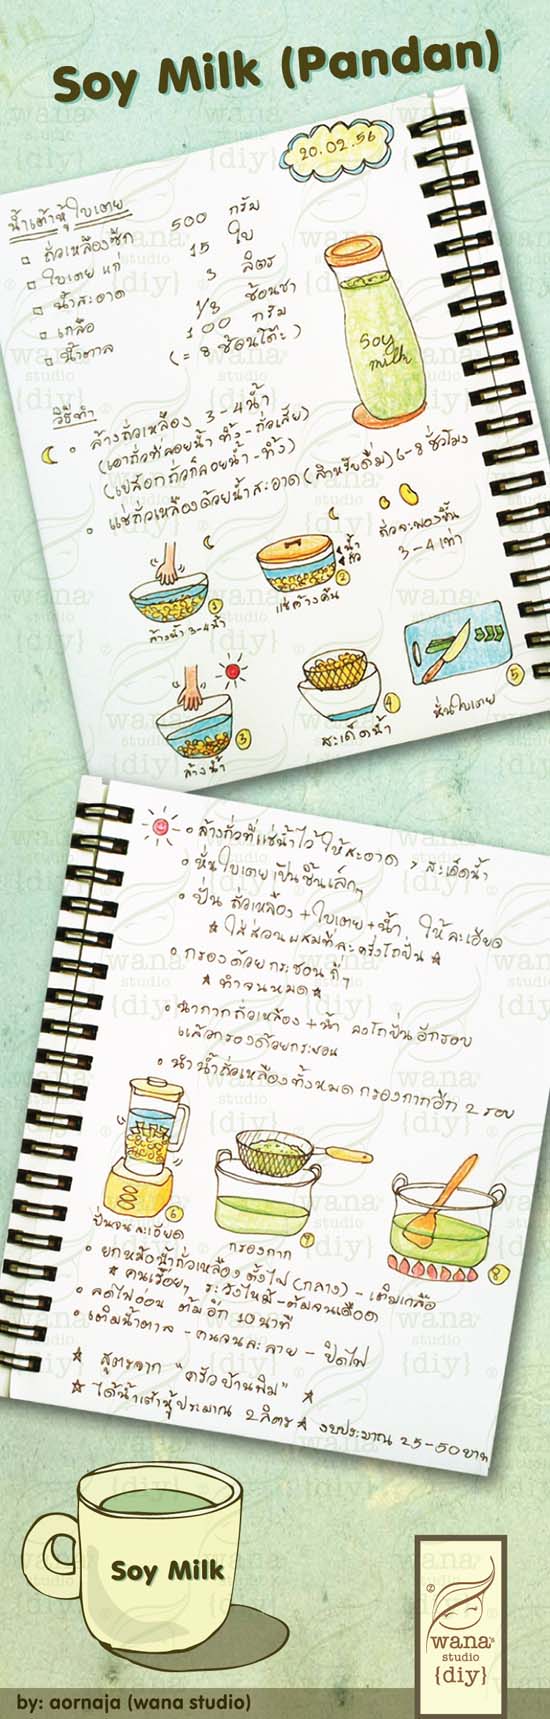 Soy Milk (Pandan)
20.02.56
น้ำเต้าหู้ใบเตย
ถั่วเหลืองซีก 500 กรัม
ใบเตย แก่ 15 ใบ
น้ำสะอาด 3 ลิตร
เกลือ 1/8 ช้อนชา
น้ำตาล 100 กรัม
(= 8 ช้อนโต๊ะ)
Soy
milk
วิธีทำ
ล้างถั่วเหลือง 3-4 น้ำ
(เอาถั่วที่ลอยน้ำ ทิ้ง - ถั่วเสีย)
(เปลือกถั่วที่ลอยน้ำ - ทิ้ง)
แช่ถั่วเหลืองด้วยน้ำสะอาด (สำหรับดื่ม) 6-8 ชั่วโมง
ถั่วจะพองขึ้น
3-4 เท่า
น้ำ
ถั่ว
1
ล้างน้ำ 3-4 น้ำ
2
แช่ค้างคืน
3
ล้างน้ำ
4
สะเด็ดน้ำ
5
หั่นใบเตย
ล้างถั่วที่แช่น้ำไว้ ให้สะอาด > สะเด็ดน้ำ
หั่นใบเตยเป็นชิ้นเล็กๆ
ปั่น ถั่วเหลือง + ใบเตย + น้ำ ให้ละเอียด
ใส่ส่วนผสมทีละครึ่งโถปั่น
กรองด้วยกระชอนถี่ๆ
ทำจนหมด
นำกากถั่วเหลือง + น้ำ ลงโถปั่น อีกรอบ
แล้วกรองด้วยกระชอน
นำน้ำถั่วเหลืองทั้งหมด กรองกากอีก 2 รอบ
6
ปั่นจนละเอียด
7
กรองกาก
8
ยกหม้อน้ำถั่วเหลือง ตั้งไฟ (กลาง) - เติมเกลือ
คนเรื่อยๆ ระวังไหม้ - ต้มจนเดือด
ลดไฟอ่อน ต้มอีก 10 นาที
เติมน้ำตาล - คนจนละลาย - ปิดไฟ
สูตรจาก "ครัวบ้านพิม"
ได้น้ำเต้าหู้ประมาณ 2 ลิตร งบประมาณ 25-50 บาท
Soy Milk
wana's
studio
{diy}
by: aornaja (wana studio)